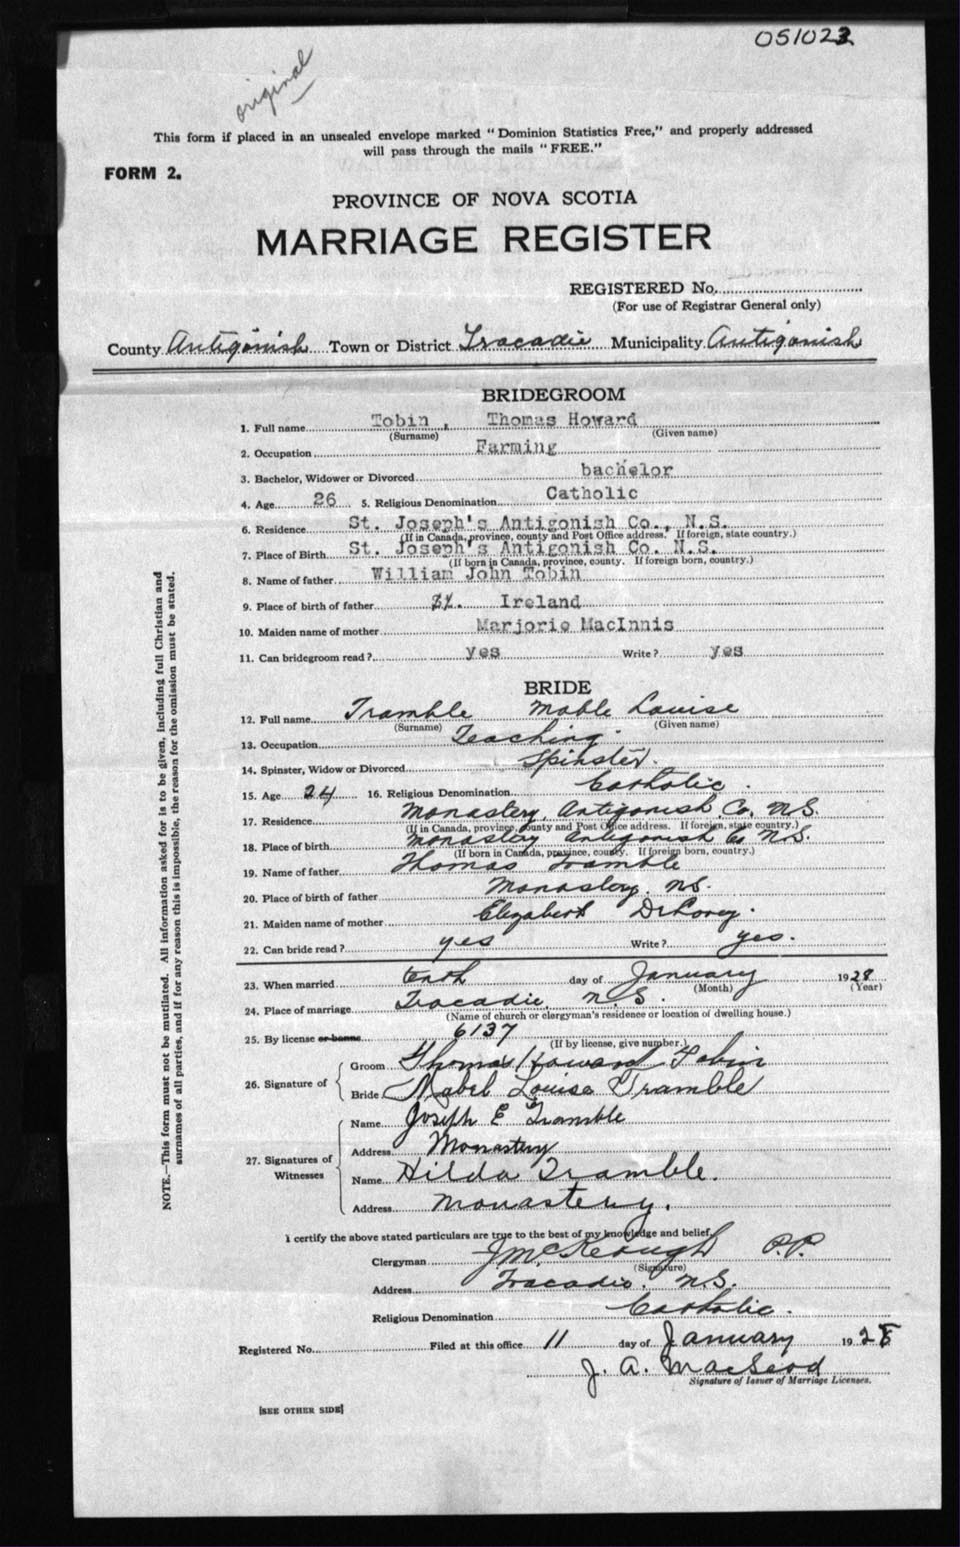 051023
original
This form if placed in an unsealed envelope marked "Dominion Statistics Free," and properly addressed
will pass through the mails "FREE."
FORM 2.
PROVINCE OF NOVA SCOTIA
MARRIAGE REGISTER
REGISTERED No.
(For use of Registrar General only)
County Antigonish Town or District Tracadie Municipality Antigonish
BRIDEGROOM
1. Full name Tobin , Thomas Howard
(Surname) (Given name)
2. Occupation Farming
3. Bachelor, Widower or Divorced bachelor
4. Age 26 5. Religious Denomination Catholic
6. Residence St. Joseph's Antigonish Co., N.S.
(If in Canada, province, county and Post Office address. If foreign, state country.)
7. Place of Birth St. Joseph's Antigonish Co. N.S.
(If born in Canada, province, county. If foreign born, country.)
8. Name of father William John Tobin
9. Place of birth of father Ireland
10. Maiden name of mother Marjorie MacInnis
11. Can bridegroom read? yes Write? yes
BRIDE
12. Full name Tramble Mable Louise
(Surname) (Given name)
13. Occupation Teaching.
14. Spinster, Widow or Divorced Spinster.
15. Age 24 16. Religious Denomination Catholic.
17. Residence Monastery, Antigonish Co, N.S.
(If in Canada, province, county and Post Office address. If foreign, state country.)
18. Place of birth Monastery Antigonish Co N.S.
(If born in Canada, province, county. If foreign born, country.)
19. Name of father Thomas Tramble
20. Place of birth of father Monastery, N.S.
21. Maiden name of mother Elizabeth DeCorey.
22. Can bride read? yes Write? yes.
23. When married tenth day of January 1928
(Month) (Year)
24. Place of marriage Tracadie, N.S.
(Name of church or clergyman's residence or location of dwelling house.)
25. By license or banns 6137
(If by license, give number.)
26. Signature of
Groom Thomas Howard Tobin
Bride Mabel Louise Tramble
27. Signatures of Witnesses
Name Joseph E Tramble
Address Monastery
Name Hilda Tramble.
Address Monastery.
I certify the above stated particulars are true to the best of my knowledge and belief,
Clergyman J McKeough P.P.
(Signature)
Address Tracadie. N.S.
Religious Denomination Catholic.
Registered No. Filed at this office 11 day of January 1928
J. A. MacLeod
Signature of Issuer of Marriage Licenses.
[SEE OTHER SIDE]
NOTE.—This form must not be mutilated. All information asked for is to be given, including full Christian and
surnames of all parties, and if for any reason this is impossible, the reason for the omission must be stated.